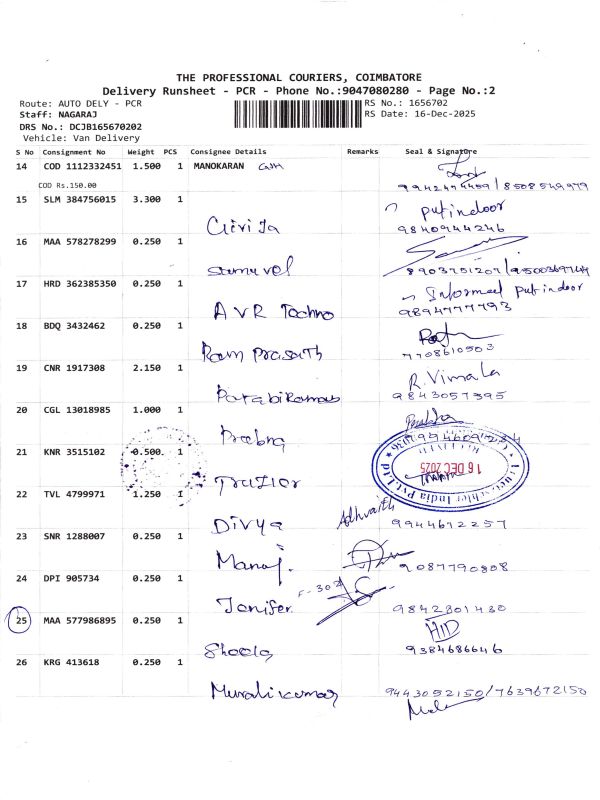 THE PROFESSIONAL COURIERS, COIMBATORE
Delivery Runsheet - PCR - Phone No.:9047080280 - Page No.:2
Route: AUTO DELY - PCR
RS No.: 1656702
Staff: NAGARAJ
RS Date: 16-Dec-2025
DRS No.: DCJB165670202
Vehicle: Van Delivery
S No Consignment No Weight PCS Consignee Details Remarks Seal & Signature
14 COD 1112332451 1.500 1 MANOKARAN
COD Rs.150.00
15 SLM 384756015 3.300 1 put indoor
9840944246
16 MAA 578278299 0.250 1
Samuvel
17 HRD 362385350 0.250 1 Informed put indoor
AVR Techno 9894777793
18 BDQ 3432462 0.250 1
Ram Prasath 7708610503
19 CNR 1917308 2.150 1 R. Vimala
9843057395
20 CGL 13018985 1.000 1
21 KNR 3515102 0.500 1 16 DEC 2025
22 TVL 4799971 1.250 1 Adhvaith
Divya 9944672257
23 SNR 1288007 0.250 1
Manoj. 9087790808
24 DPI 905734 0.250 1 F-302
Jenifer 9842801430
25 MAA 577986895 0.250 1 HID
Sheela 9384686646
26 KRG 413618 0.250 1
Muralikumar 9443052150/7639672150